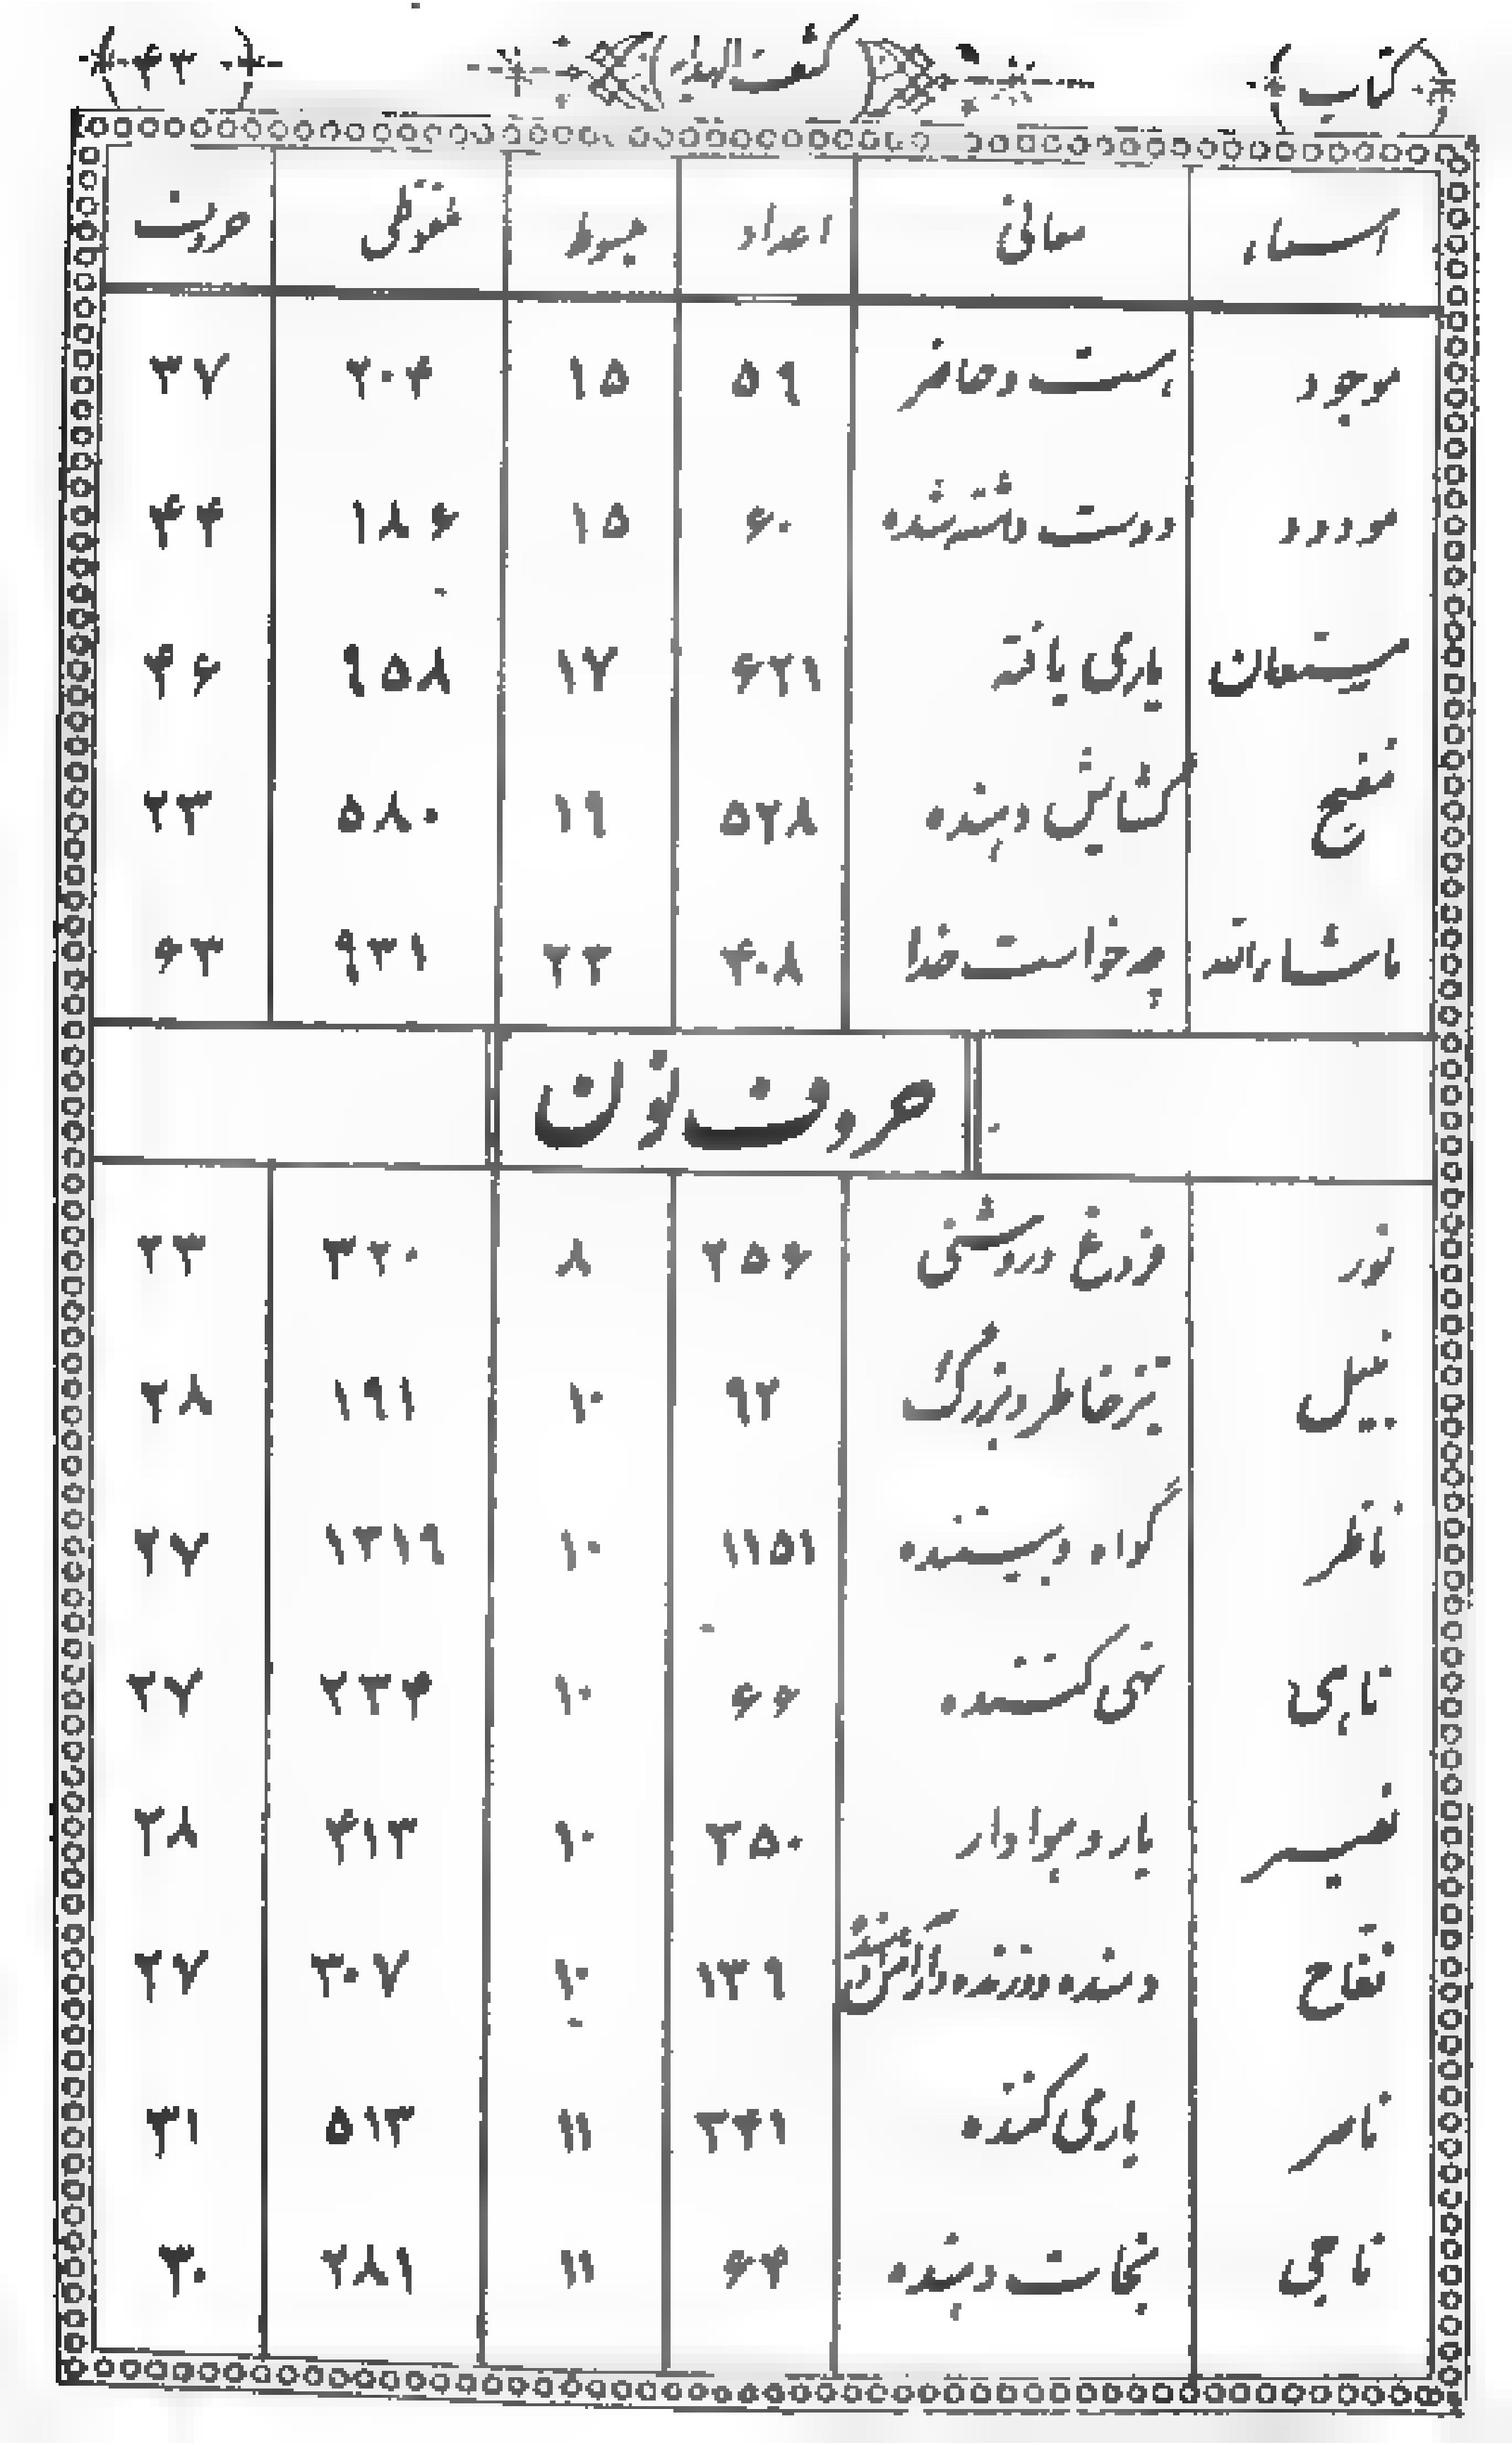 کتاب کشف الهدایه ۴۳
اسماء معانی اعداد مبسوط ملفوظی حروف
موجود هست و حاضر ۵۹ ۱۵ ۲۰۴ ۳۷
مودود دوست داشته شده ۶۰ ۱۵ ۱۸۶ ۴۴
مستعان یاری یافته ۶۲۱ ۱۷ ۹۵۸ ۴۶
مفتح کشایش دهنده ۵۲۸ ۱۹ ۵۸۰ ۲۳
ماشاءالله چه خواست خدا ۴۰۸ ۲۳ ۹۳۱ ۶۳
حروف نون
نور فروغ و روشنی ۲۵۶ ۸ ۳۲۰ ۲۳
نبیل تیز خاطر و بزرگ ۹۲ ۱۰ ۱۹۱ ۲۸
ناظر گواه و بیننده ۱۱۵۱ ۱۰ ۱۳۱۹ ۲۷
ناهی نهی کننده ۶۶ ۱۰ ۲۳۴ ۲۷
نصیر یار و هوادار ۳۵۰ ۱۰ ۴۱۳ ۲۸
نفاح دهنده ۱۳۹ ۱۰ ۳۰۷ ۲۷
ناصر یاری کننده ۳۴۱ ۱۱ ۵۱۳ ۳۱
ناجی نجات دهنده ۶۴ ۱۱ ۲۸۱ ۳۰